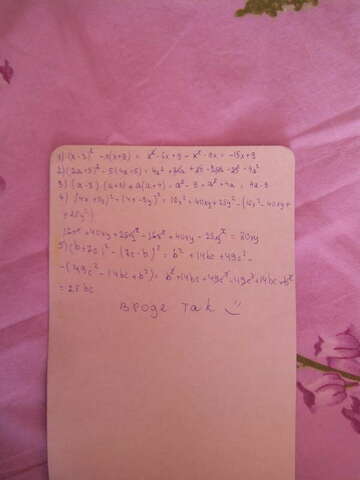 1) (x-3)² - x(x+9) = x² - 6x + 9 - x² - 9x = -15x+9
2) (2a+5)² - 5(4a+5) = 4a² + 20a + 25 - 20a - 25 = 4a²
3) (a-3)·(a+3) + a(a+4) = a² - 9 + a² + 4a = 4a-9
4) (4x+5y)² - (4x-5y)² = 16x² + 40xy + 25y² - (16x² - 40xy +
+ 25y²)
16x² + 40xy + 25y² - 16x² + 40xy - 25y² = 80xy
5) (b+7c)² - (7c-b)² = b² + 14bc + 49c² -
- (49c² - 14bc + b²) = b² + 14bc + 49c² - 49c² + 14bc - b²
= 28bc
вроде так